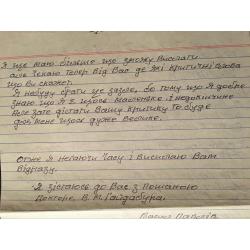 Я ще маю більше що зможу Вислати
але чекаю тепер від Вас де які критичні слова
що Ви скажете.
Я небуду брати це зазле, бо тому що я добре
знаю що я є щось маленьке і недовчине
Але зате дістати Вашу критику то буде
для мене щось дуже велике.
Отже я негаючи часу і Висилаю Вам
відразу.
Я зістаюсь до Вас з пошаною
Докторе. В. М. Гайдабура.